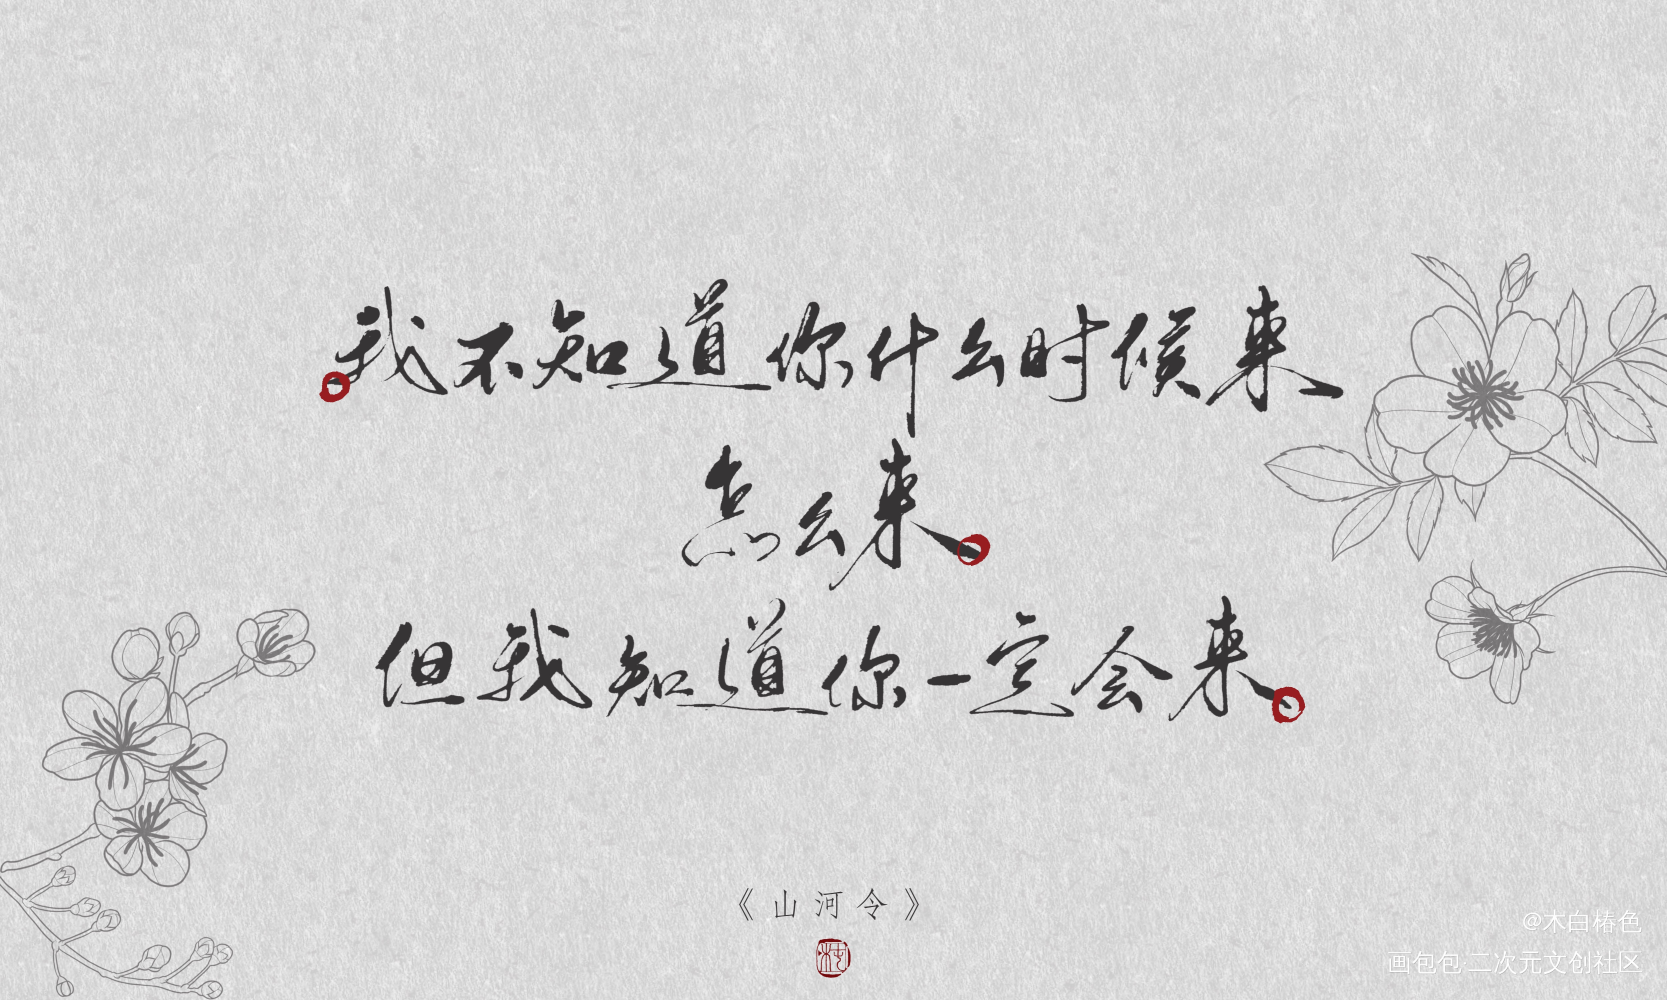 我不知道你什么时候来
怎么来
但我知道你一定会来
《山河令》
@木白椿色
画包包·二次元文创社区